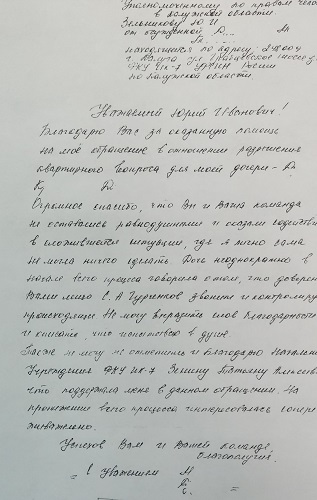 Уполномоченному по правам чело
в Калужской области.
Зельникову Ю И
от осужденной Д...
находящейся по адресу: 248009
г. Калуга ул. Грабцевское шоссе
ФКУ ИК-7 УФСИН России
по Калужской области.
Уважаемый Юрий Иванович!
Благодарю Вас за оказанную помощь
на моё обращение в отношении разрешения
квартирного вопроса для моей дочери - Д.
К. Д.
Огромное спасибо, что Вы и Ваша команда
не остались равнодушными и оказали содействие
в сложившейся ситуации, где я лично сама
не могла ничего сделать. Дочь неоднократно в
начале всего процесса говорила о том, что доверен
Вами лицо С. А Гурченков звонит и контролирует
происходящее. Не могу выразить слов благодарности
и описать, что испытываю в душе.
Также не могу не отметить и благодарю начальника
Учреждения ФКУ ИК-7 Зелину Татьяну Алексеевну
что поддержала меня в данном обращении. На
протяжении всего процесса интересовалась, сопере
живала.
Успехов Вам и Вашей команде,
благополучия.
С Уважением